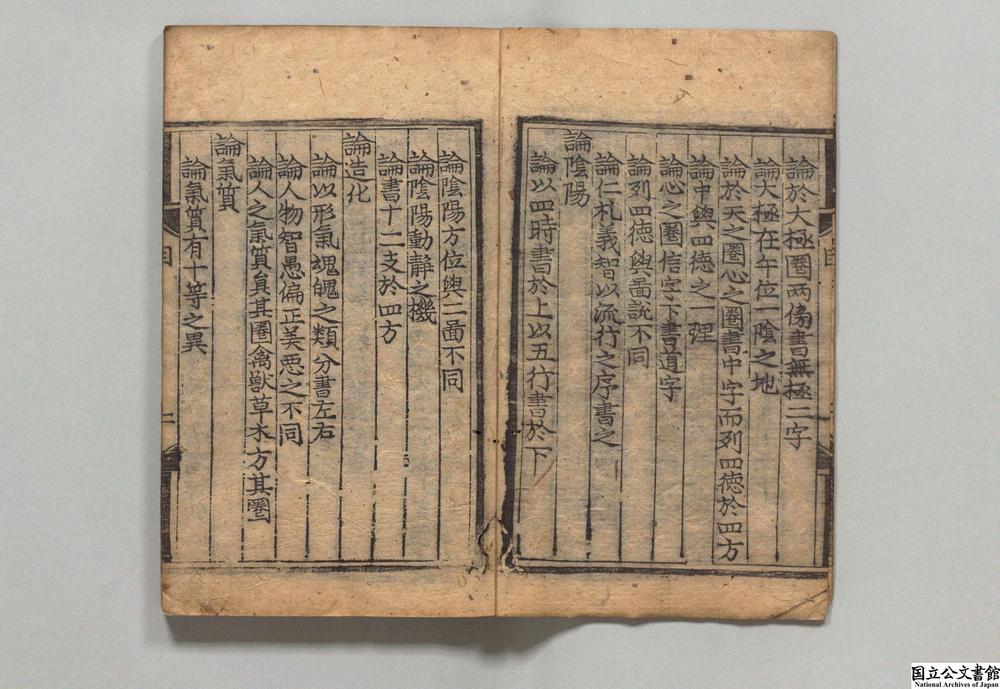 論於太極圈两傍書無極二字
論太極在午位一陰之地
論於天之圈心之圈書中字而列四徳於四方
論中與四徳之一理
論心之圈信字下書道字
論列四徳與啚說不同
論仁礼義智以流行之序書之
論陰陽
論以四時書於上以五行書於下
論陰陽方位與二啚不同
論陰陽動靜之機
論書十二支於四方
論造化
論以形氣魂魄之類分書左右
論人物智愚偏正美惡之不同
論人之氣質負其圈禽獸草木方其圈
論氣質
論氣質有十等之異
国立公文書館
National Archives of Japan